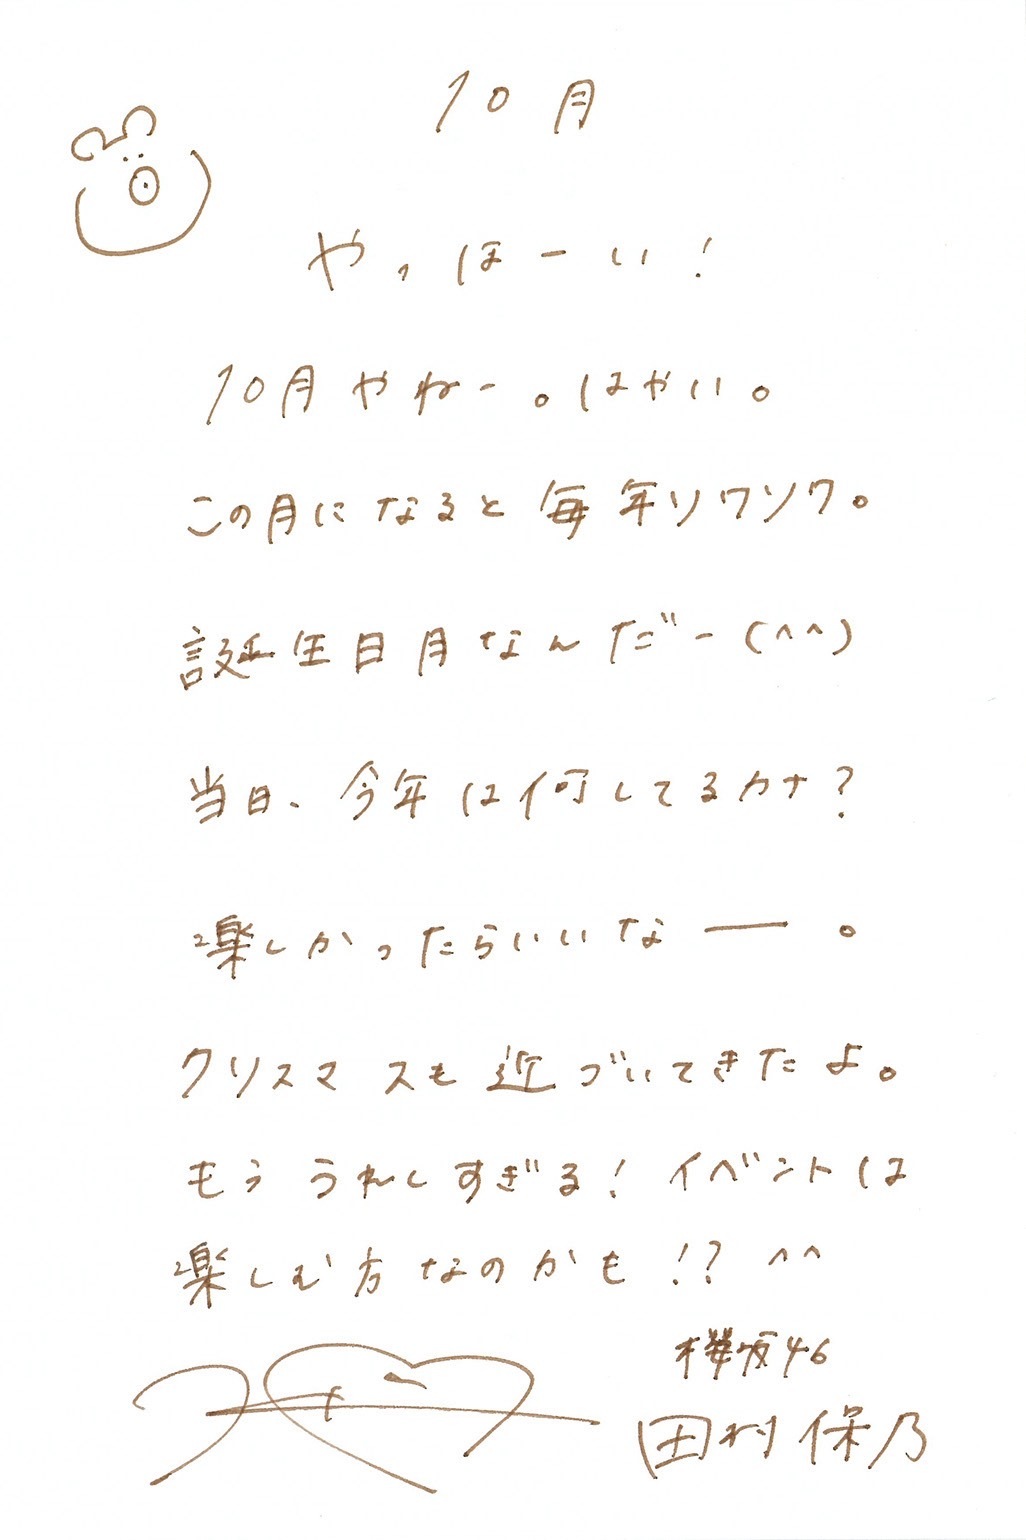 10月
やっほーい!
10月やねー。はやい。
この月になると毎年ソワソワ。
誕生日月なんだー(^^)
当日、今年は何してるカナ?
楽しかったらいいなー。
クリスマスも近づいてきたよ。
もううれしすぎる!イベントは
楽しむ方なのかも!?^^
欅坂46
田村保乃